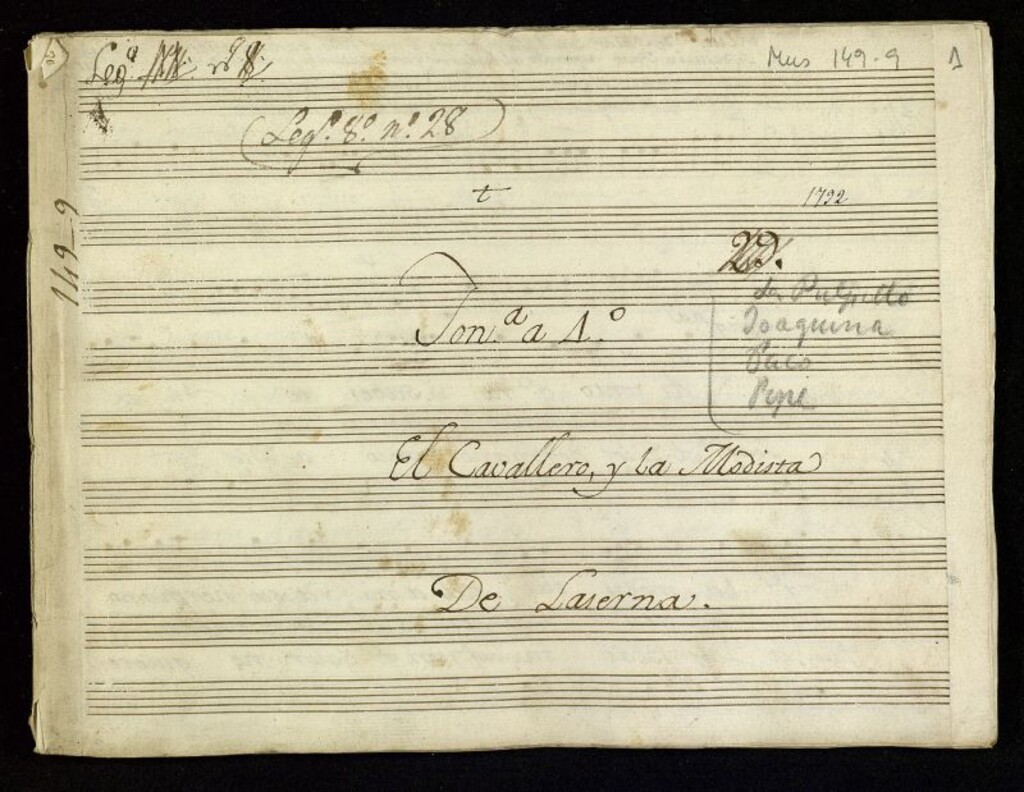 Leg.ª
Mus 149-9
1
Leg.º 8.º n.º 28
t
1792
149-9
Ton.ª a 4.º
La Pulpillo
Joaquina
Paco
Pepe
El Cavallero, y la Modista
De Laserna.